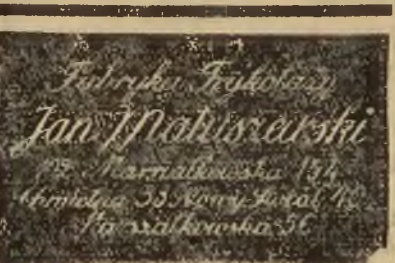 Fabryka Trykotaży
Jan Matuszewski
Marszałkowska 154
Chmielna 33 Nowy Świat
Marszałkowska 56